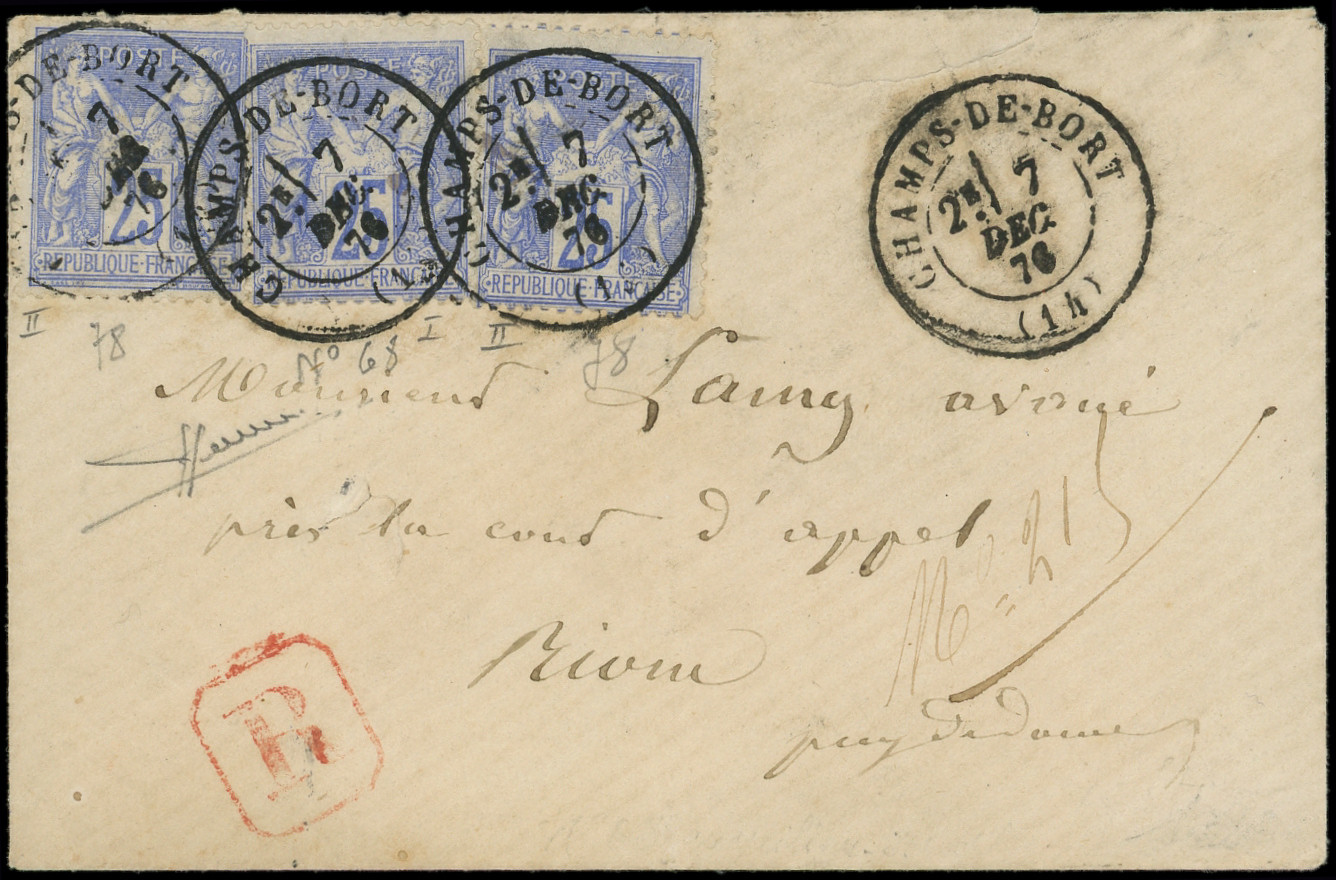 POSTE
25
REPUBLIQUE-FRANÇAISE
POSTE
25
REPUBLIQUE-FRANÇAISE
POSTE
25
REPUBLIQUE-FRANÇAISE
S-DE-BORT
7
76
CHAMPS-DE-BORT
2E/ 7
DEC.
76
CHAMPS-DE-BORT
2E/ 7
DEC.
76
CHAMPS-DE-BORT
2E/ 7
DEC.
76
(14)
II 78 N° 68 I II 78
Monsieur Lamy avoué
près la cour d'appel
Riom
puy de dome
N° 215
R